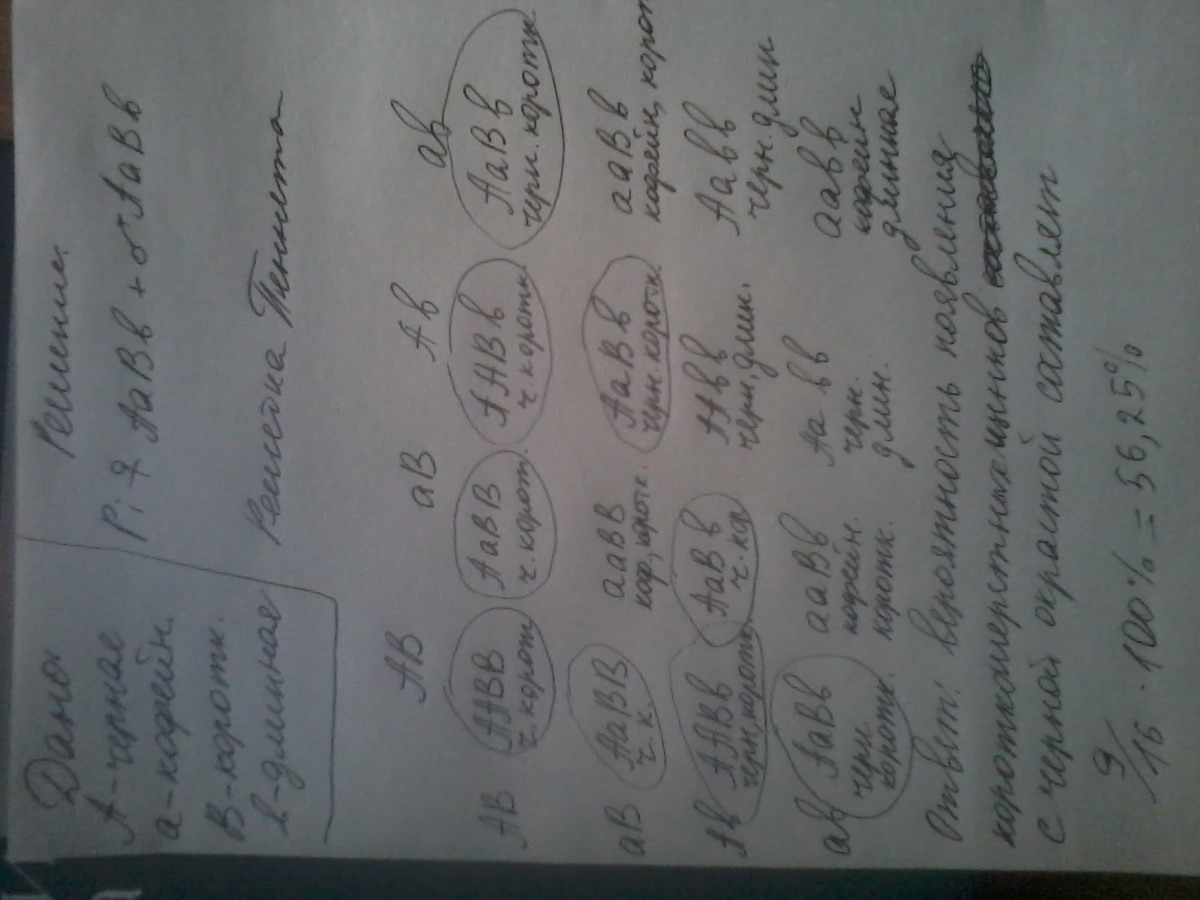 Дано Решение.
А-черная
а-кофейн. Р: ♀ АаВв + ♂ АаВв
В-коротк.
в-длинная Решетка Пеннета
АВ аВ Ав ав
АВ ААВВ АаВВ ААВв АаВв
ч. корот ч. корот. ч. коротк. черн. коротк.
аВ АаВВ ааВВ АаВв ааВв
ч. к. коф., коротк. черн. коротк. кофейн, корот
Ав ААВв АаВв ААвв Аавв
черн, коротк ч. кор черн, длин. черн. длин
ав АаВв ааВв Аавв аавв
черн. кофейн. черн. кофейн
коротк. коротк. длин. длинная
Ответ: вероятность появления
короткошерстных щенков
с черной окраской
9/16 · 100% = 56,25%